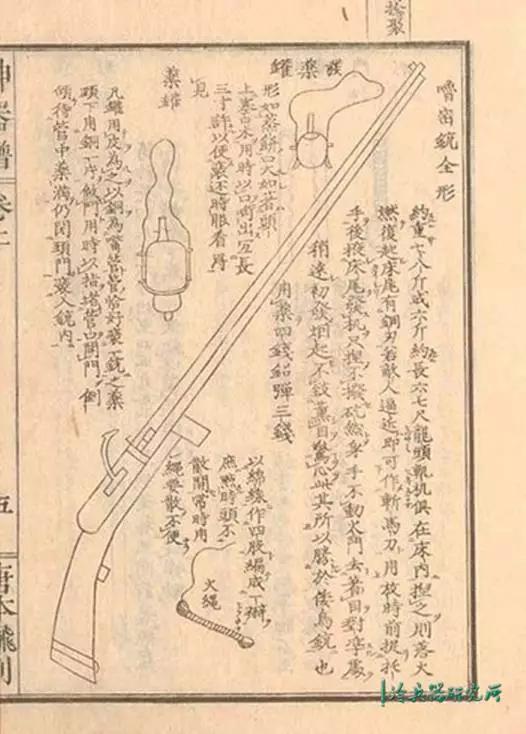 嚕密銃全形
約重七八斤或六斤約長六七尺龍頭軌机俱在床內捏之則落火
燃復起床尾有鋼刃若敵人逼近即可作斬馬刀用放時前捉托
手後掖床尾發机只捏不撥砣然身手不動火門去著目對準處
稍遠初發烟起不致薰目驚心此其所以勝於倭鳥銃也
用藥四錢鉛彈三錢
發藥罐
形如蒸餅口大如
上塞白木用時以口啣出 長
三寸許以便裝还時眼看得
見
藥罐
凡罐用皮為之以銅為嘴管管恰好裝一銃之藥
頭下用銅一片做門用時以指堵管口開門倒
傾待管中藥滿仍閉頭門裝入銃內
以綿線作四股編成一辮
庶燃時頭不
散開常時用
繩要散不便
火繩
神器譜 卷二
五
唐本飜刻
冷兵器研究所